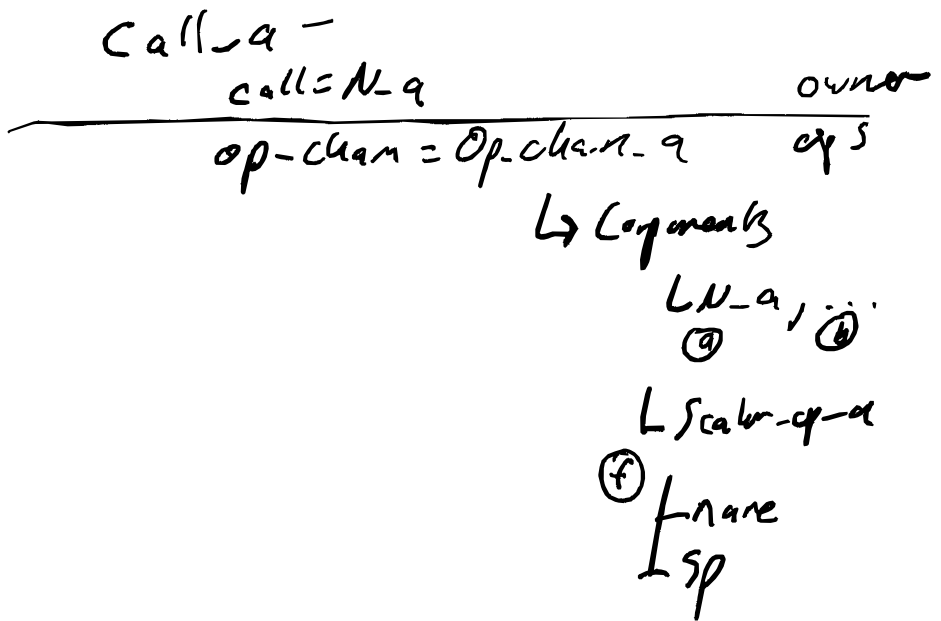 Call_a -
call = N_a owner
op_chain = Op_chain_a ops
↳ Components
N_a, ...
a b
Scalar_op_a
f
name
sp